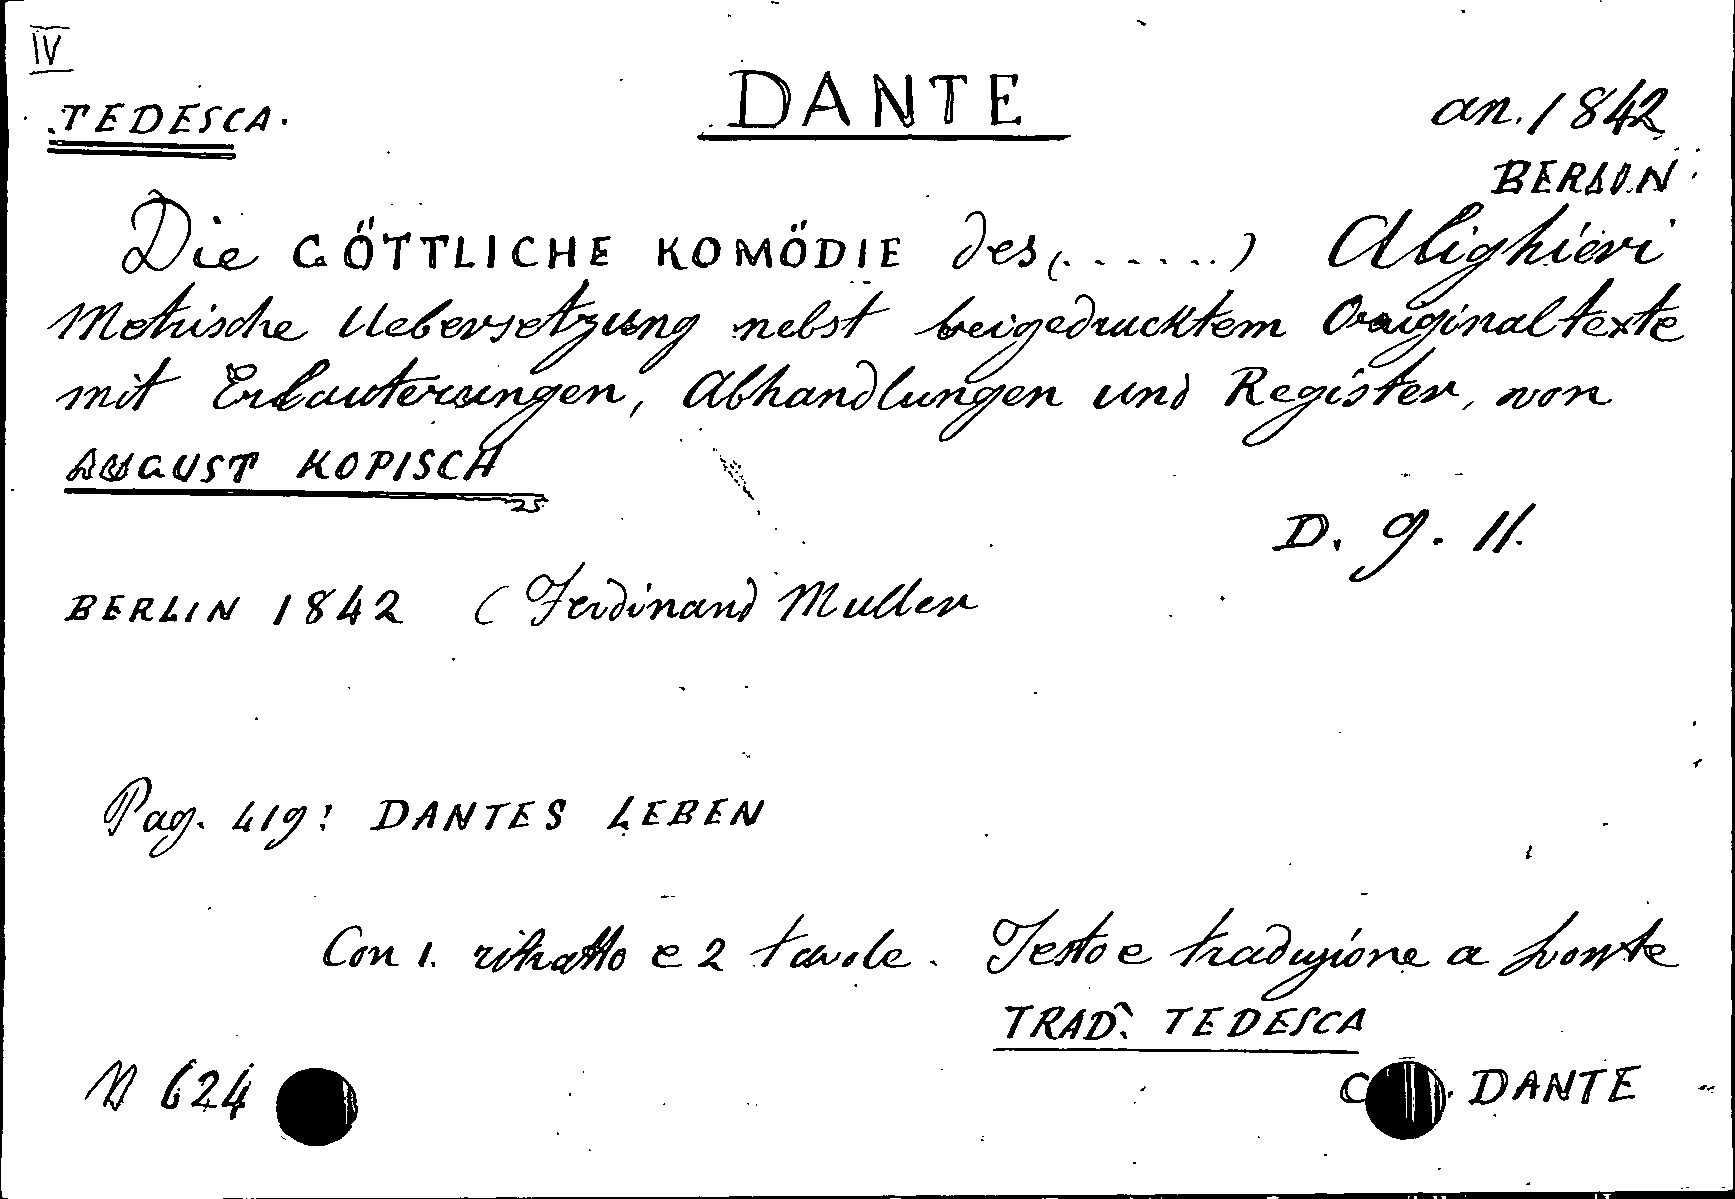 IV
TEDESCA.
DANTE
an. 1842
BERLIN
Die GÖTTLICHE KOMÖDIE des (......) Alighieri
Metrische Uebersetzung nebst beigedrucktem Originaltexte
mit Erlauterungen, Abhandlungen und Register, von
AUGUST KOPISCH
D. 9. 11.
BERLIN 1842 (Ferdinand Muller
Pag. 419: DANTES LEBEN
Con 1. ritratto e 2 tavole. Testo e traduzione a fronte
TRAD. TEDESCA
N 624
DANTE